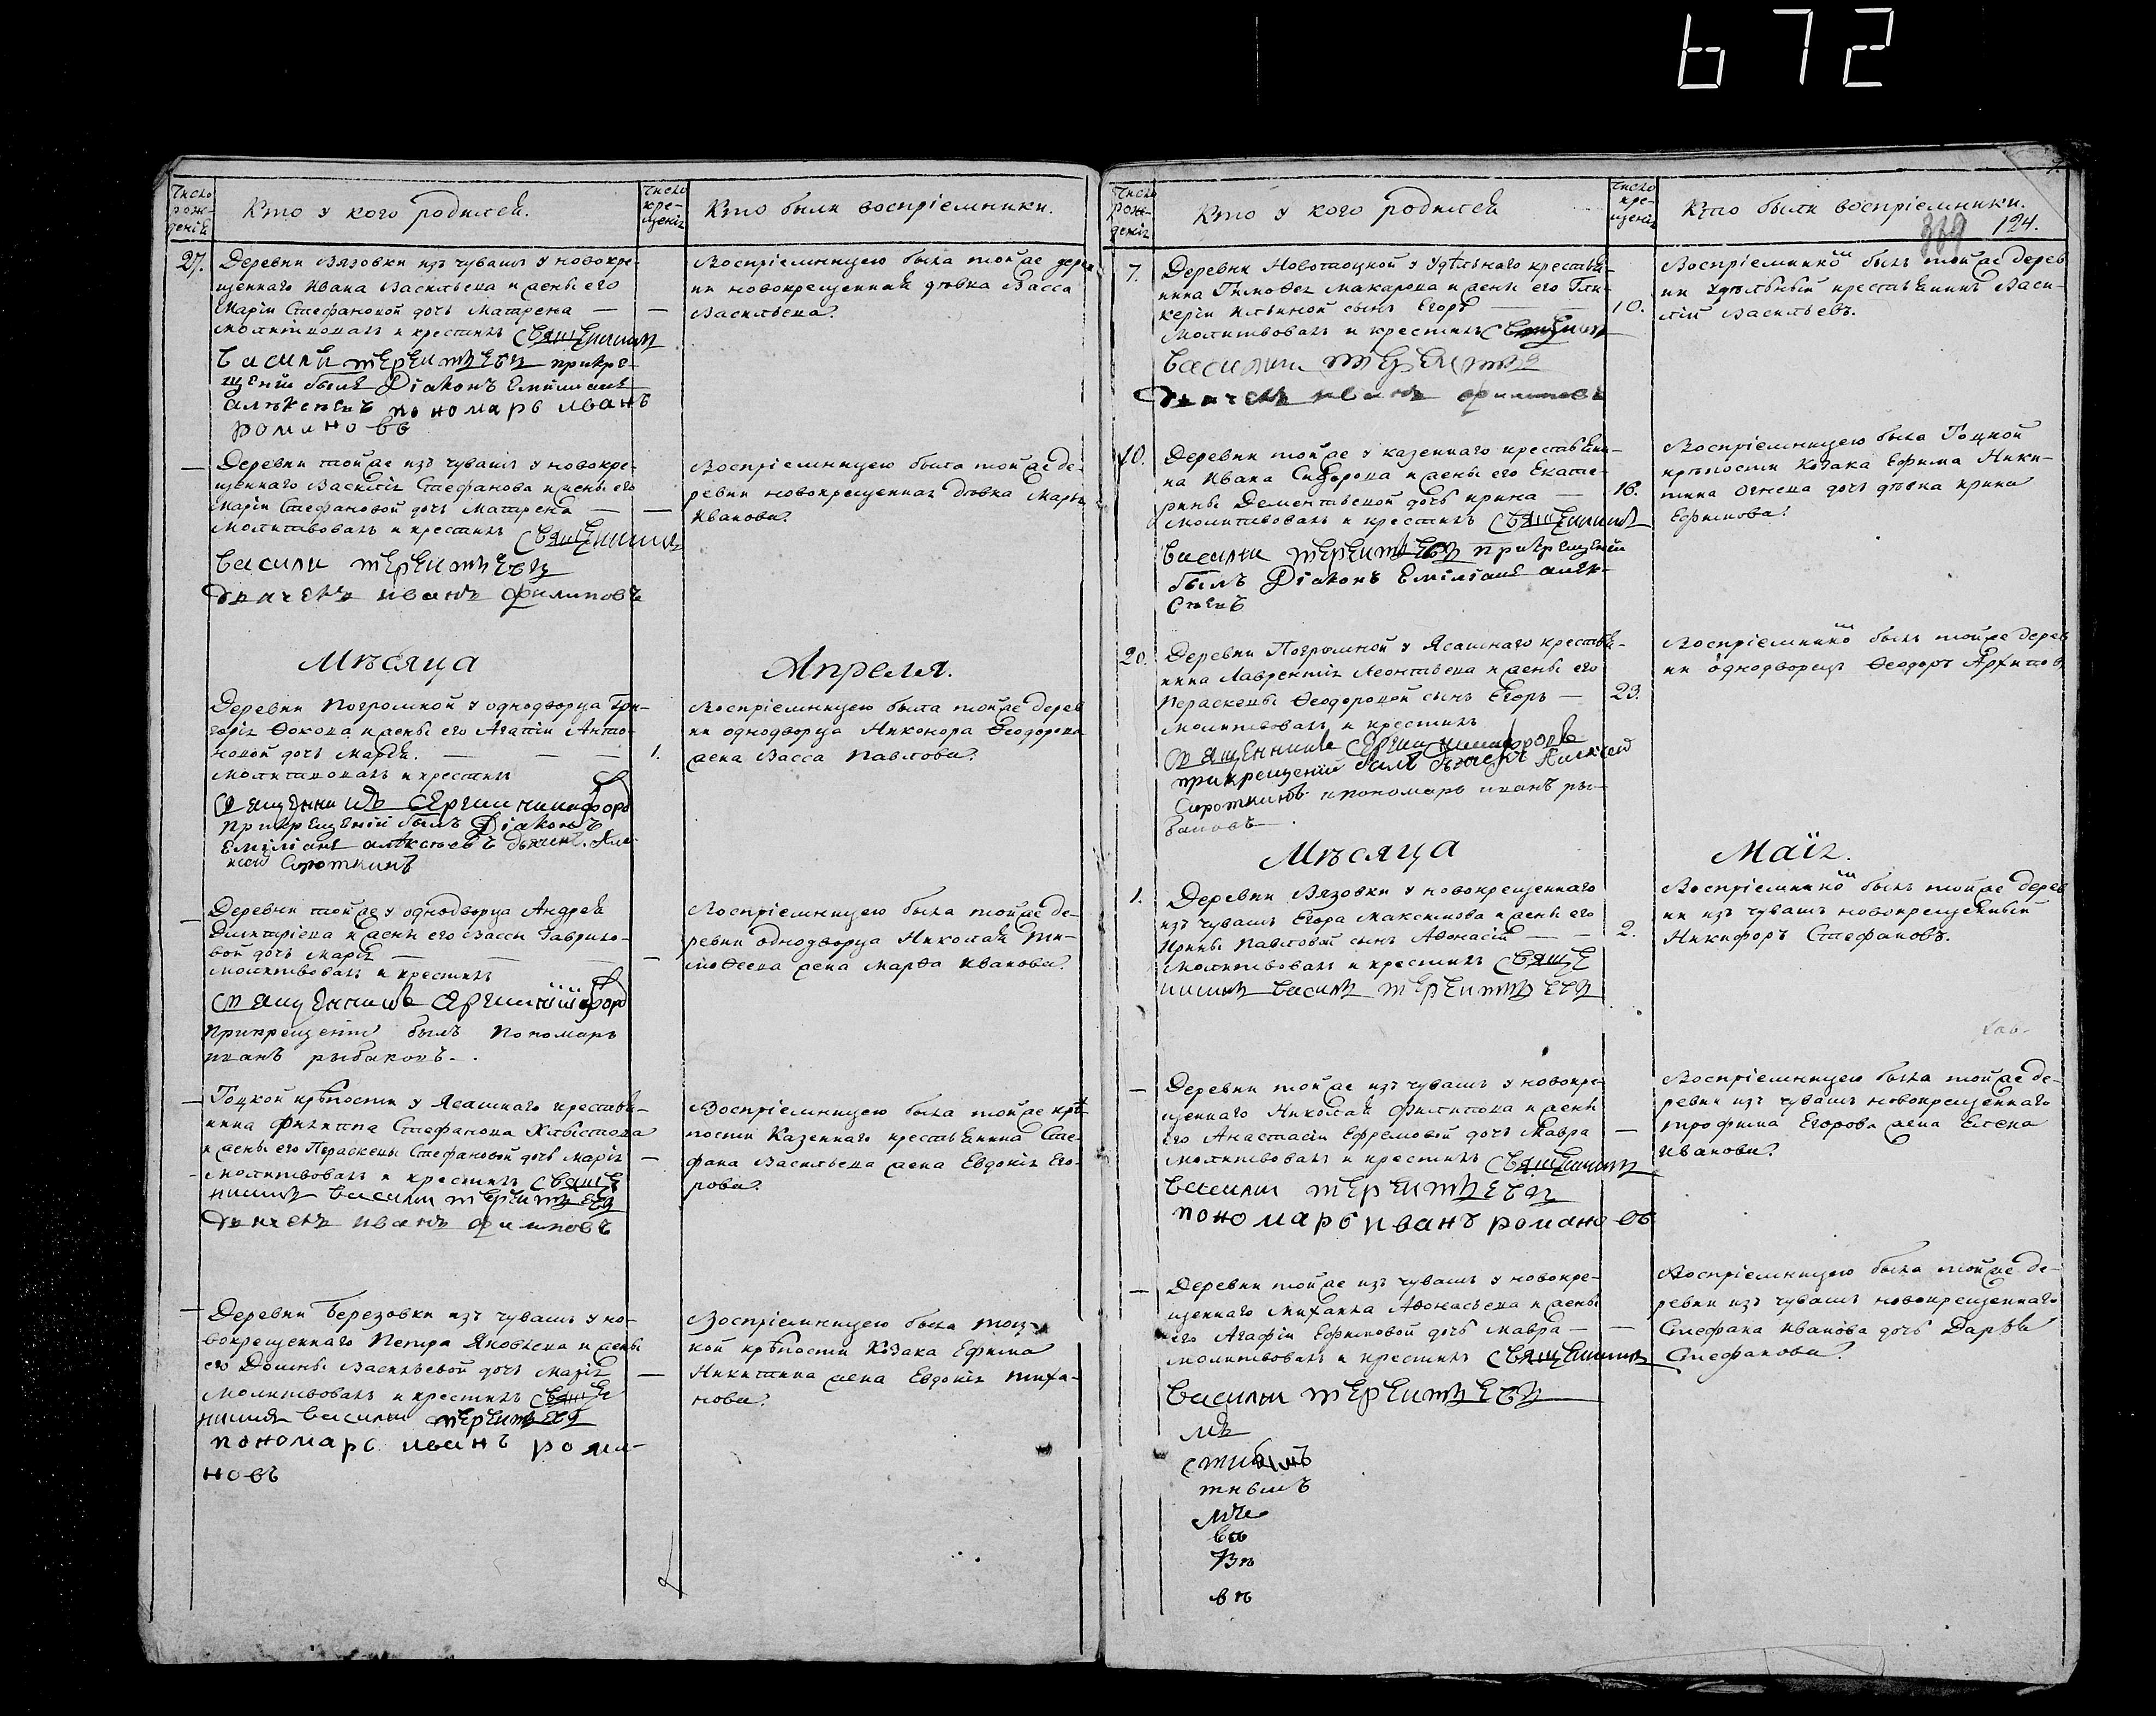 672
Число рож- деніѧ
Кто у кого родился.
Число кре- щеніѧ
Кто были воспріемники.
27.
Деревни Вязовки изъ чувашъ у новокре-
щеннаго Ивана Васильева и жены его
Маріи Стефановой дочь Матрена — —
молитвовалъ и крестилъ священникъ
василий терентьевъ прикре-
щеніи былъ Діаконъ Емиліанъ
алѣксѣевъ пономарь иванъ
романовъ
Воспріемницею была тойже дерев
ни новокрещенная дѣвка Васса
Васильева.
— Деревни тойже изъ чувашъ у новокре-
щеннаго Василія Стефанова и жены его
Маріи Стефановой дочь Матрена — —
молитвовалъ и крестилъ священникъ
василий терентьевъ
дьячекъ иванъ филиповъ
Воспріемницею была тойже де-
ревни новокрещенная дѣвка Марья
Иванова.
Мѣсяца Апреля.
Деревни Погромной у однодворца Гри-
горія Фокова и жены его Агапіи Анто-
новой дочь Марія. — — — 1.
молитвовалъ и крестилъ
священникъ Сергии никифоровъ
прикрещеніи былъ Діаконъ
Емиліанъ алѣксѣевъ дьячекъ Але-
ксей Сироткинъ
Воспріемницею была тойже дерев
ни однодворца Никонора Ѳеодорова
жена Васса Павлова.
— Деревни тойже у однодворца Андрея
Дмитріева и жены его Вассы Гаврило-
вой дочь Марія — — — —
молитвовалъ и крестилъ
священникъ Сергии никифоровъ
прикрещеніи былъ Пономарь
иванъ рыбаковъ.
Воспріемницею была тойже де-
ревни однодворца Николая Ти-
моѳеева жена Марѳа Иванова.
— Тоцкой крѣпости у Ясашнаго крестья-
нина Филиппа Стефанова Хлыстова
и жены его Параскевы Стефановой дочь Марія —
молитвовалъ и крестилъ свяще
нникъ василии терентьевъ
дьячекъ иванъ филиповъ
Воспріемницею была тойже крѣ-
пости Казеннаго крестьянина Сте-
фана Васильева жена Евдокія Его-
рова.
— Деревни Березовки изъ чувашъ у но-
вокрещеннаго Петра Яковлева и жены
его Домны Васильевой дочь Марія —
молитвовалъ и крестилъ свяще
нникъ василии терентьевъ
пономарь иванъ рома-
новъ
Воспріемницею была тоц-
кой крѣпости Козака Ефима
Никитина жена Евдокія тиха-
нова.
Число рож- деніѧ
Кто у кого родился
Число кре- щеніѧ
Кто были воспріемники.
369 124.
7.
7. Деревни Новотоцкой у Удѣльнаго крестья-
нина Тимоѳея Макарова и жены его Гли-
керіи Ильиной сынъ Егоръ — — 10.
молитвовалъ и крестилъ священникъ
василии терентьевъ
дьячекъ иванъ филиповъ
Воспріемникомъ былъ тойже дерев
ни Удѣльный крестьянинъ Васи-
лій Васильевъ.
10. Деревни тойже у казеннаго крестьяни-
на Ивана Сидорова и жены его Екате-
рины Дементьевой дочь Ирина — 16.
молитвовалъ и крестилъ священникъ
василии терентьевъ прикрещеніи
былъ Діаконъ Емиліанъ алек-
сѣевъ
Воспріемницею была Тоцкой
крѣпости Козака Ефима Ники-
тина Огнева дочь дѣвка Ирина
Ефимова.
20. Деревни Погромной у Ясашнаго крестья-
нина Лаврентія Леонтьева и жены его
Параскевы Ѳеодоровой сынъ Егоръ — 23.
молитвовалъ и крестилъ
священникъ Сергии никифоровъ
прикрещеніи былъ дьячекъ Алексей
Сироткинъ и пономарь иванъ ры-
баковъ
Воспріемникомъ былъ тойже дерев
ни однодворецъ Ѳеодоръ Архипов
Мѣсяца Маія.
1. Деревни Вязовки у новокрещеннаго
изъ чувашъ Егора Максимова и жены его
Ирины Павловой сынъ Аѳонасій — — 2.
молитвовалъ и крестилъ свяще
нникъ василий терентьевъ
Воспріемникомъ былъ тойже дерев
ни изъ чувашъ новокрещенный
Никифоръ Стефановъ.
— Деревни тойже изъ чувашъ у новокре-
щеннаго Николая Филипова и жены
его Анастасіи Ефремовой дочь Мавра —
молитвовалъ и крестилъ священникъ
василии терентьевъ
пономарь иванъ романовъ
Воспріемницею была тойже де-
ревни изъ чувашъ новокрещеннаго
трофима Егорова жена Елена
Иванова.
— Деревни тойже изъ чувашъ у новокре-
щеннаго Михаила Аѳонасьева и жены
его Агафіи Ефимовой дочь Мавра — —
молитвовалъ и крестилъ священникъ
василии терентьевъ
Воспріемницею была тойже де-
ревни изъ чувашъ новокрещеннаго
Стефана Иванова дочь Дарья
Стефанова.